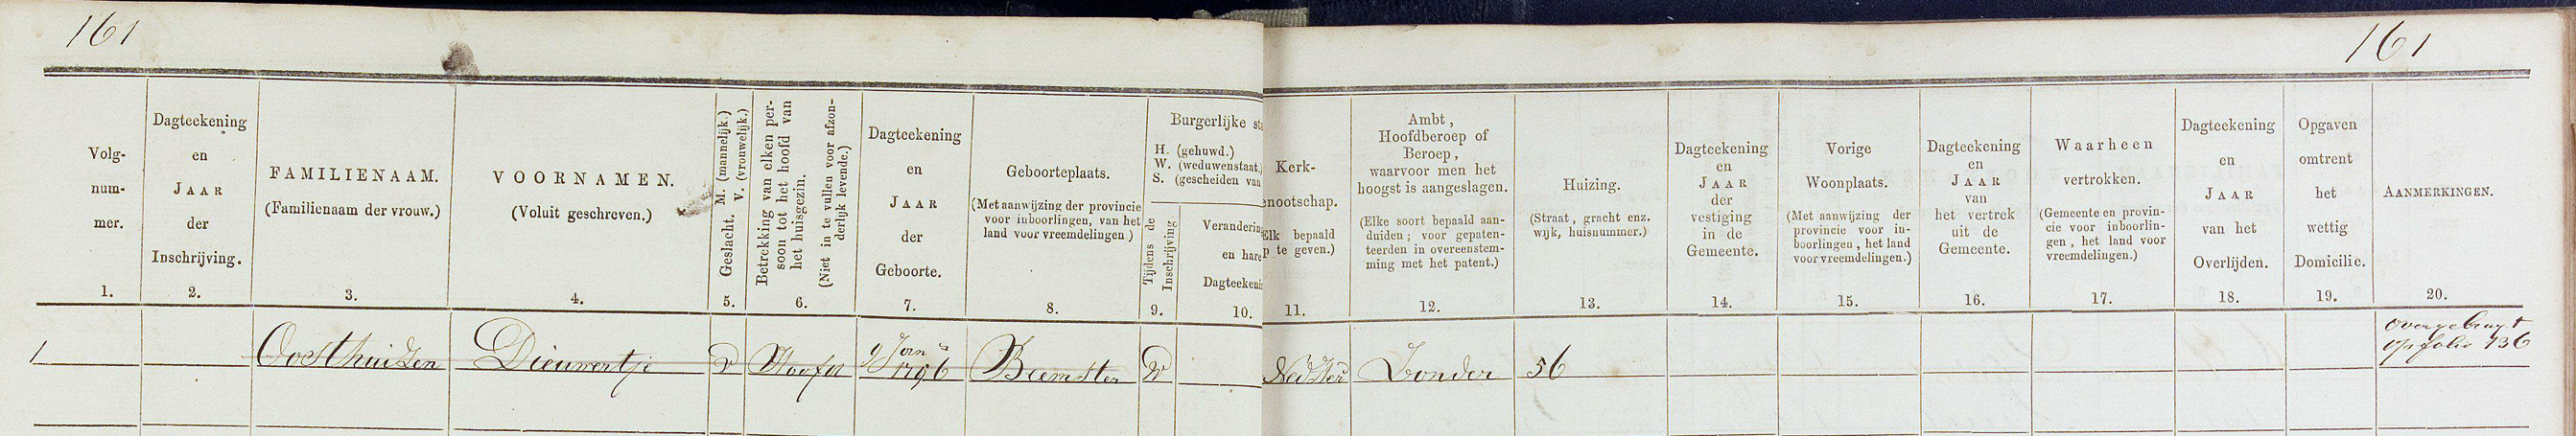 161
161
Volg-
num-
mer.
1.
Dagteekening
en
JAAR
der
Inschrijving.
2.
FAMILIENAAM.
(Familienaam der vrouw.)
3.
VOORNAMEN.
(Voluit geschreven.)
4.
Geslacht. M. (mannelijk.)
V. (vrouwelijk.)
5.
Betrekking van elken per-
soon tot het hoofd van
het huisgezin.
(Niet in te vullen voor afzon-
derlijk levende.)
6.
Dagteekening
en
JAAR
der
Geboorte.
7.
Geboorteplaats.
(Met aanwijzing der provincie
voor inboorlingen, van het
land voor vreemdelingen.)
8.
Burgerlijke sta
H. (gehuwd.)
W. (weduwenstaat.)
S. (gescheiden van
Tijdens de
Inschrijving
9.
Verandering
en hare
Dagteekeni
10.
Kerk-
enootschap.
Elk bepaald
p te geven.)
11.
Ambt,
Hoofdberoep of
Beroep,
waarvoor men het
hoogst is aangeslagen.
(Elke soort bepaald aan-
duiden; voor gepaten-
teerden in overeenstem-
ming met het patent.)
12.
Huizing.
(Straat, gracht enz.
wijk, huisnummer.)
13.
Dagteekening
en
JAAR
der
vestiging
in de
Gemeente.
14.
Vorige
Woonplaats.
(Met aanwijzing der
provincie voor in-
boorlingen, het land
voor vreemdelingen.)
15.
Dagteekening
en
JAAR
van
het vertrek
uit de
Gemeente.
16.
Waarheen
vertrokken.
(Gemeente en provin-
cie voor inboorlin-
gen, het land voor
vreemdelingen.)
17.
Dagteekening
en
JAAR
van het
Overlijden.
18.
Opgaven
omtrent
het
wettig
Domicilie.
19.
AANMERKINGEN.
20.
1 Oosthuizen Dieuwertje V Hoofd 9 Jan 1796 Beemster W Zonder 56
overgebragt
op folio 136